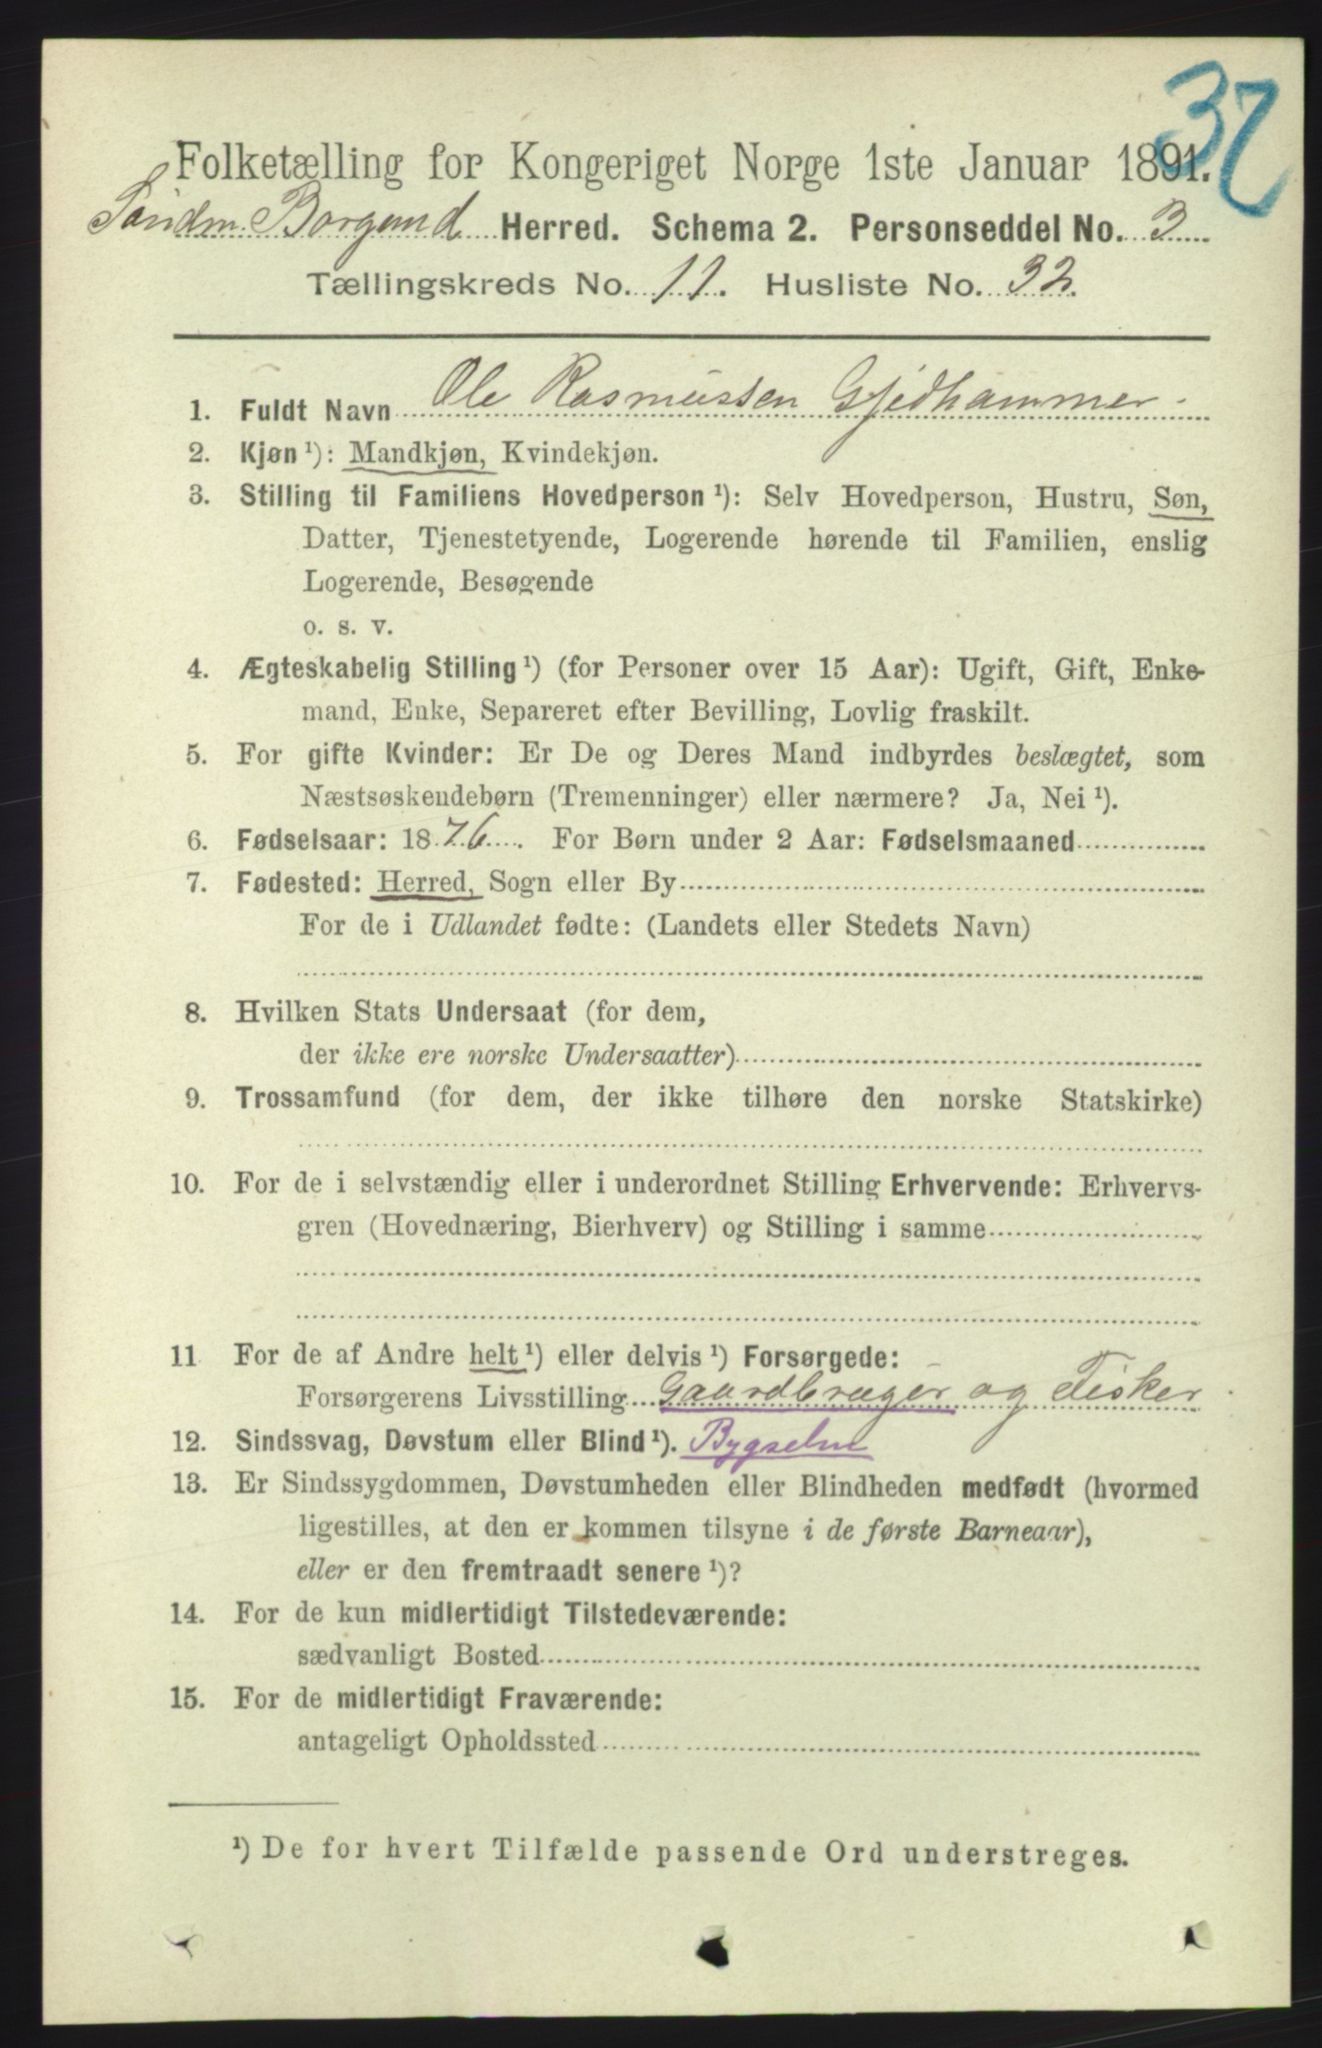 32
Folketælling for Kongeriget Norge 1ste Januar 1891.
Søndm. Borgund Herred. Schema 2. Personseddel No. 3
Tællingskreds No. 11. Husliste No. 32.
1. Fuldt Navn Ole Rasmussen Gjedhammer
2. Kjøn ¹): Mandkjøn, Kvindekjøn.
3. Stilling til Familiens Hovedperson ¹): Selv Hovedperson, Hustru, Søn,
Datter, Tjenestetyende, Logerende hørende til Familien, enslig
Logerende, Besøgende
o. s. v.
4. Ægteskabelig Stilling ¹) (for Personer over 15 Aar): Ugift, Gift, Enke-
mand, Enke, Separeret efter Bevilling, Lovlig fraskilt.
5. For gifte Kvinder: Er De og Deres Mand indbyrdes beslægtet, som
Næstsøskendebørn (Tremenninger) eller nærmere? Ja, Nei ¹).
6. Fødselsaar: 1876. For Børn under 2 Aar: Fødselsmaaned
7. Fødested: Herred, Sogn eller By
For de i Udlandet fødte: (Landets eller Stedets Navn)
8. Hvilken Stats Undersaat (for dem,
der ikke ere norske Undersaatter)
9. Trossamfund (for dem, der ikke tilhøre den norske Statskirke)
10. For de i selvstændig eller i underordnet Stilling Erhvervende: Erhvervs-
gren (Hovednæring, Bierhverv) og Stilling i samme
11 For de af Andre helt ¹) eller delvis ¹) Forsørgede:
Forsørgerens Livsstilling Gaardbruger og Fisker
12. Sindssvag, Døvstum eller Blind ¹). Bygselm
13. Er Sindssygdommen, Døvstumheden eller Blindheden medfødt (hvormed
ligestilles, at den er kommen tilsyne i de første Barneaar),
eller er den fremtraadt senere ¹)?
14. For de kun midlertidigt Tilstedeværende:
sædvanligt Bosted
15. For de midlertidigt Fraværende:
antageligt Opholdssted
¹) De for hvert Tilfælde passende Ord understreges.